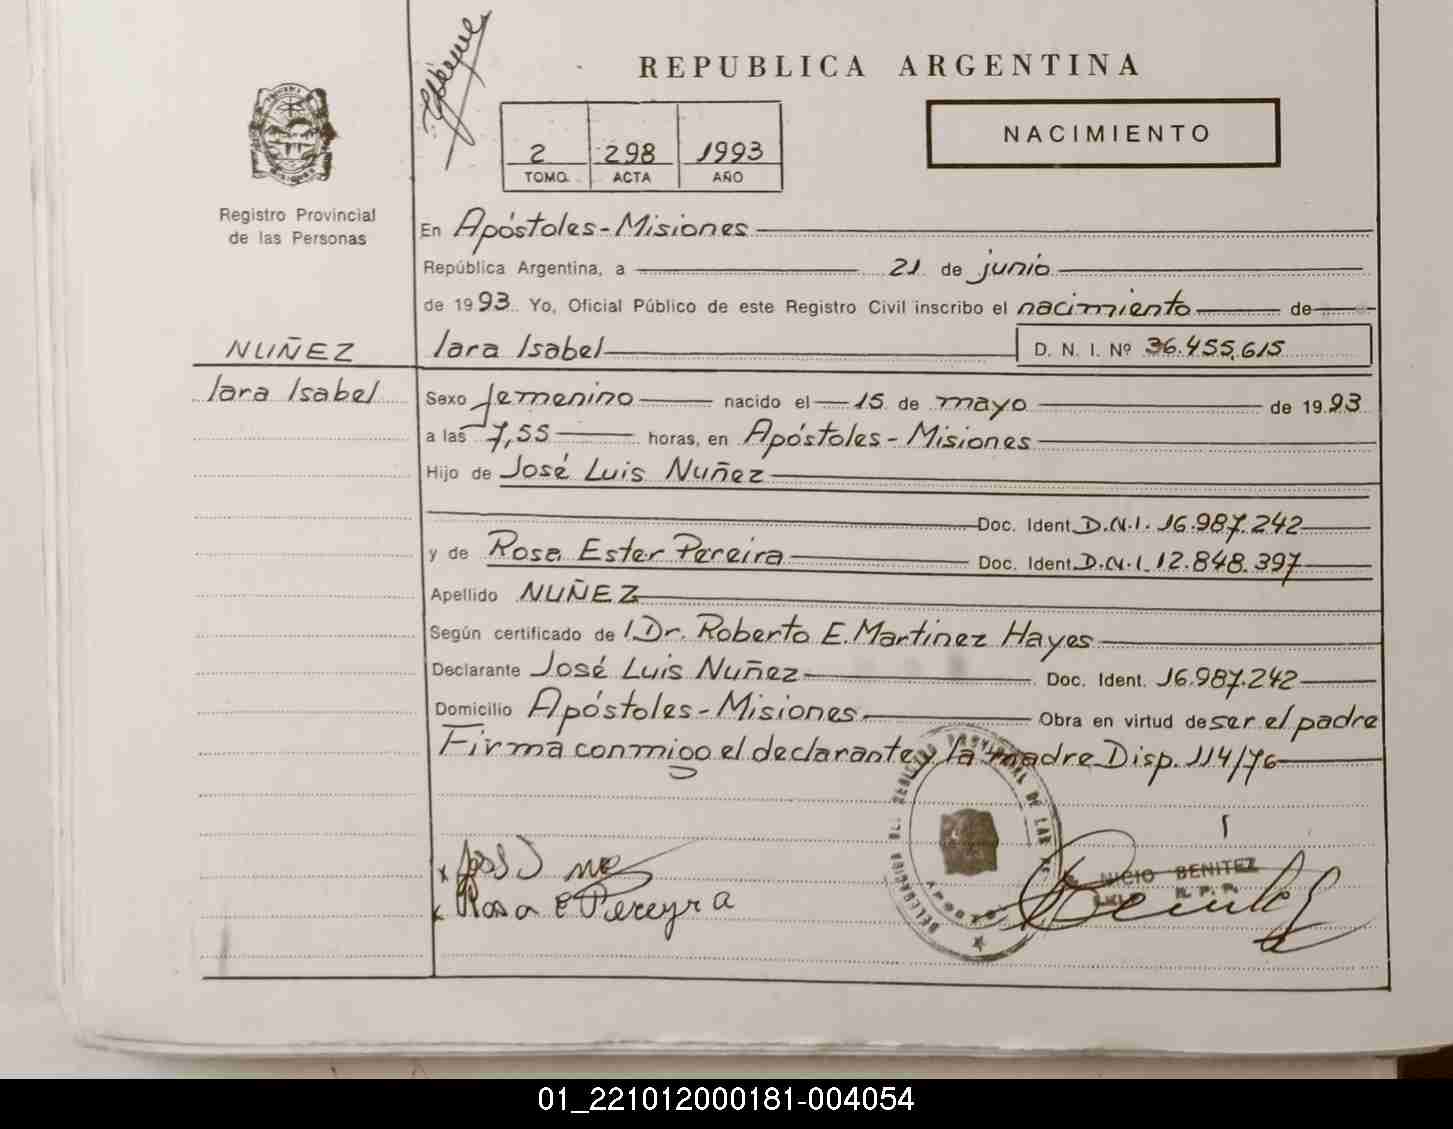 REPUBLICA ARGENTINA
NACIMIENTO
2 298 1993
TOMO ACTA AÑO
Registro Provincial
de las Personas
En Apóstoles-Misiones
República Argentina, a 21 de junio
de 1993. Yo, Oficial Público de este Registro Civil inscribo el nacimiento de
NUÑEZ
Iara Isabel
Iara Isabel D. N. I. Nº 36.455.615
Sexo femenino nacido el 15 de mayo de 1993
a las 7,55 horas, en Apóstoles-Misiones
Hijo de José Luis Nuñez
Doc. Ident. D.N.I. 16.987.242
y de Rosa Ester Pereira Doc. Ident. D.N.I. 12.848.397
Apellido NUÑEZ
Según certificado de l Dr. Roberto E. Martinez Hayes
Declarante José Luis Nuñez Doc. Ident. 16.987.242
Domicilio Apóstoles-Misiones Obra en virtud de ser el padre
Firma conmigo el declarante y la madre Disp. 114/76
x José
x Rosa E Pereyra
NICIO BENITEZ
01_221012000181-004054